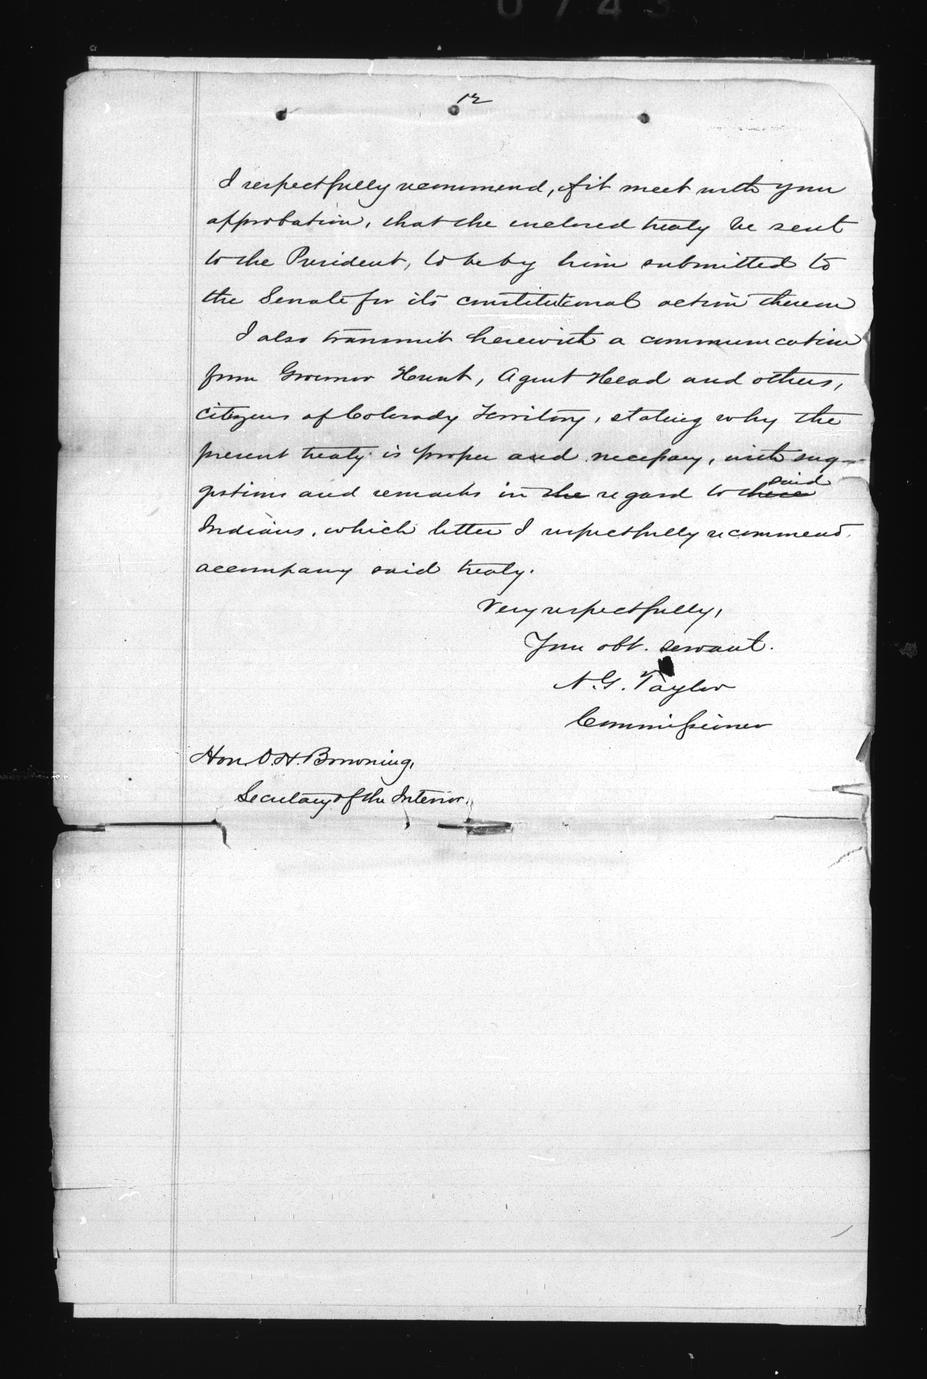 0743
12
I respectfully recommend, if it meet with your
approbation, that the inclosed treaty be sent
to the President, to be by him submitted to
the Senate for its constitutional action thereon
I also transmit herewith a communication
from Governor Hunt, Agent Head and others,
citizens of Colorado Territory, stating why the
present treaty is proper and necessary, with sug-
gestions and remarks in the regard to these said
Indians, which letter I respectfully recommend
accompany said treaty.
Very respectfully,
Your obt. servant.
N. G. Taylor
Commissioner
Hon. O. H. Browning,
Secretary of the Interior.